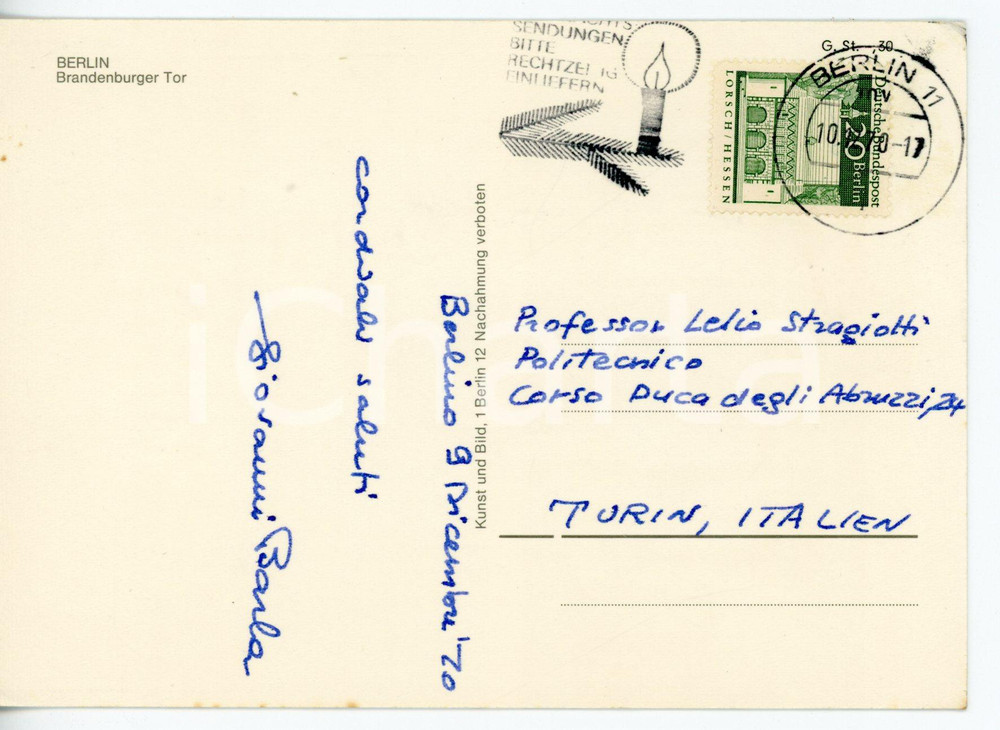 BERLIN
Brandenburger Tor
SENDUNGEN
BITTE
RECHTZEITIG
EINLIEFERN
G. St. 30
BERLIN 11
LORSCH/HESSEN
20
Berlin
Deutsche Bundespost
Kunst und Bild, 1 Berlin 12 Nachahmung verboten
Berlino 9 Dicembre '70
cordiali saluti
Giovanni Barla
Professor Lelio Stragiotti
Politecnico
Corso Duca degli Abruzzi, 24
TURIN, ITALIEN
iCharta